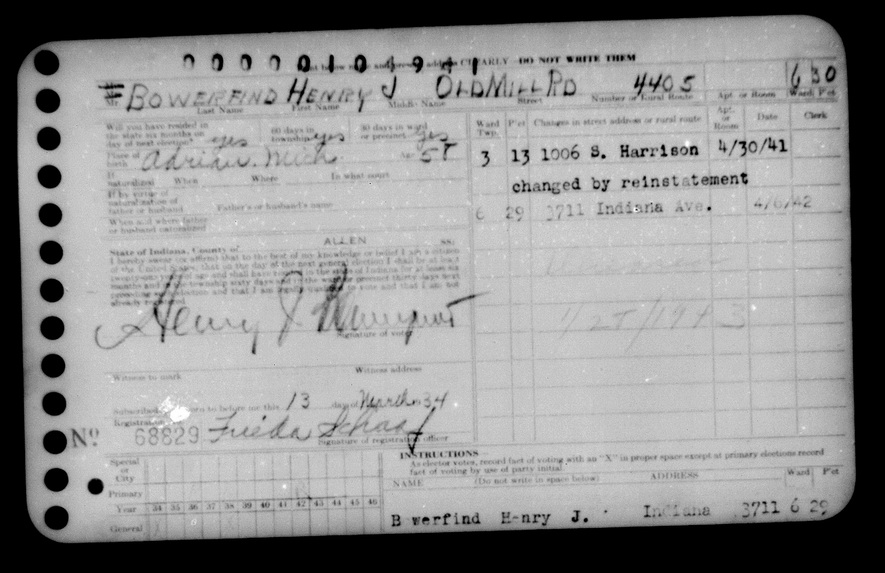 0 0 0 0 0 1 0 1 9 4 1
CLEARLY - DO NOT WRITE THEM
BOWERFIND HENRY J OLD MILL RD 4405 6 30
Mr. Last Name First Name Middle Name Street Number or Rural Route Apt. or Room Ward P'ct
Will you have resided in the state six months on day of next election? yes 60 days in township yes 30 days in ward or precinct yes
Place of birth Adrian. Mich. Age 58
If naturalized When Where In what court
If by virtue of naturalization of father or husband Father's or husband's name
When and where father or husband naturalized
State of Indiana, County of ALLEN SS:
I hereby swear (or affirm) that to the best of my knowledge or belief I am a citizen
of the United States, that on the day of the next general election I shall be at least
twenty-one years of age and shall have resided in the state of Indiana for at least six
months and in the township sixty days and in the ward or precinct thirty days next
preceding such election and that I am legally qualified to vote and that I am not
already registered.
Henry J Bowerfind
Signature of voter
Witness to mark Witness address
Subscribed and sworn to before me this 13 day of March 34
Registration
No 68829 Frieda Schaaf
Signature of registration officer
Ward Twp. P'ct Changes in street address or rural route Apt. or Room Date Clerk
3 13 1006 S. Harrison 4/30/41
changed by reinstatement
6 29 3711 Indiana Ave. 4/6/42
Special or City
Primary
Year 34 35 36 37 38 39 40 41 42 43 44 45 46
General
INSTRUCTIONS
As elector votes, record fact of voting with an "X" in proper space except at primary elections record
fact of voting by use of party initial.
NAME (Do not write in space below) ADDRESS Ward P'ct
B werfind H nry J. Indiana 3711 6 29